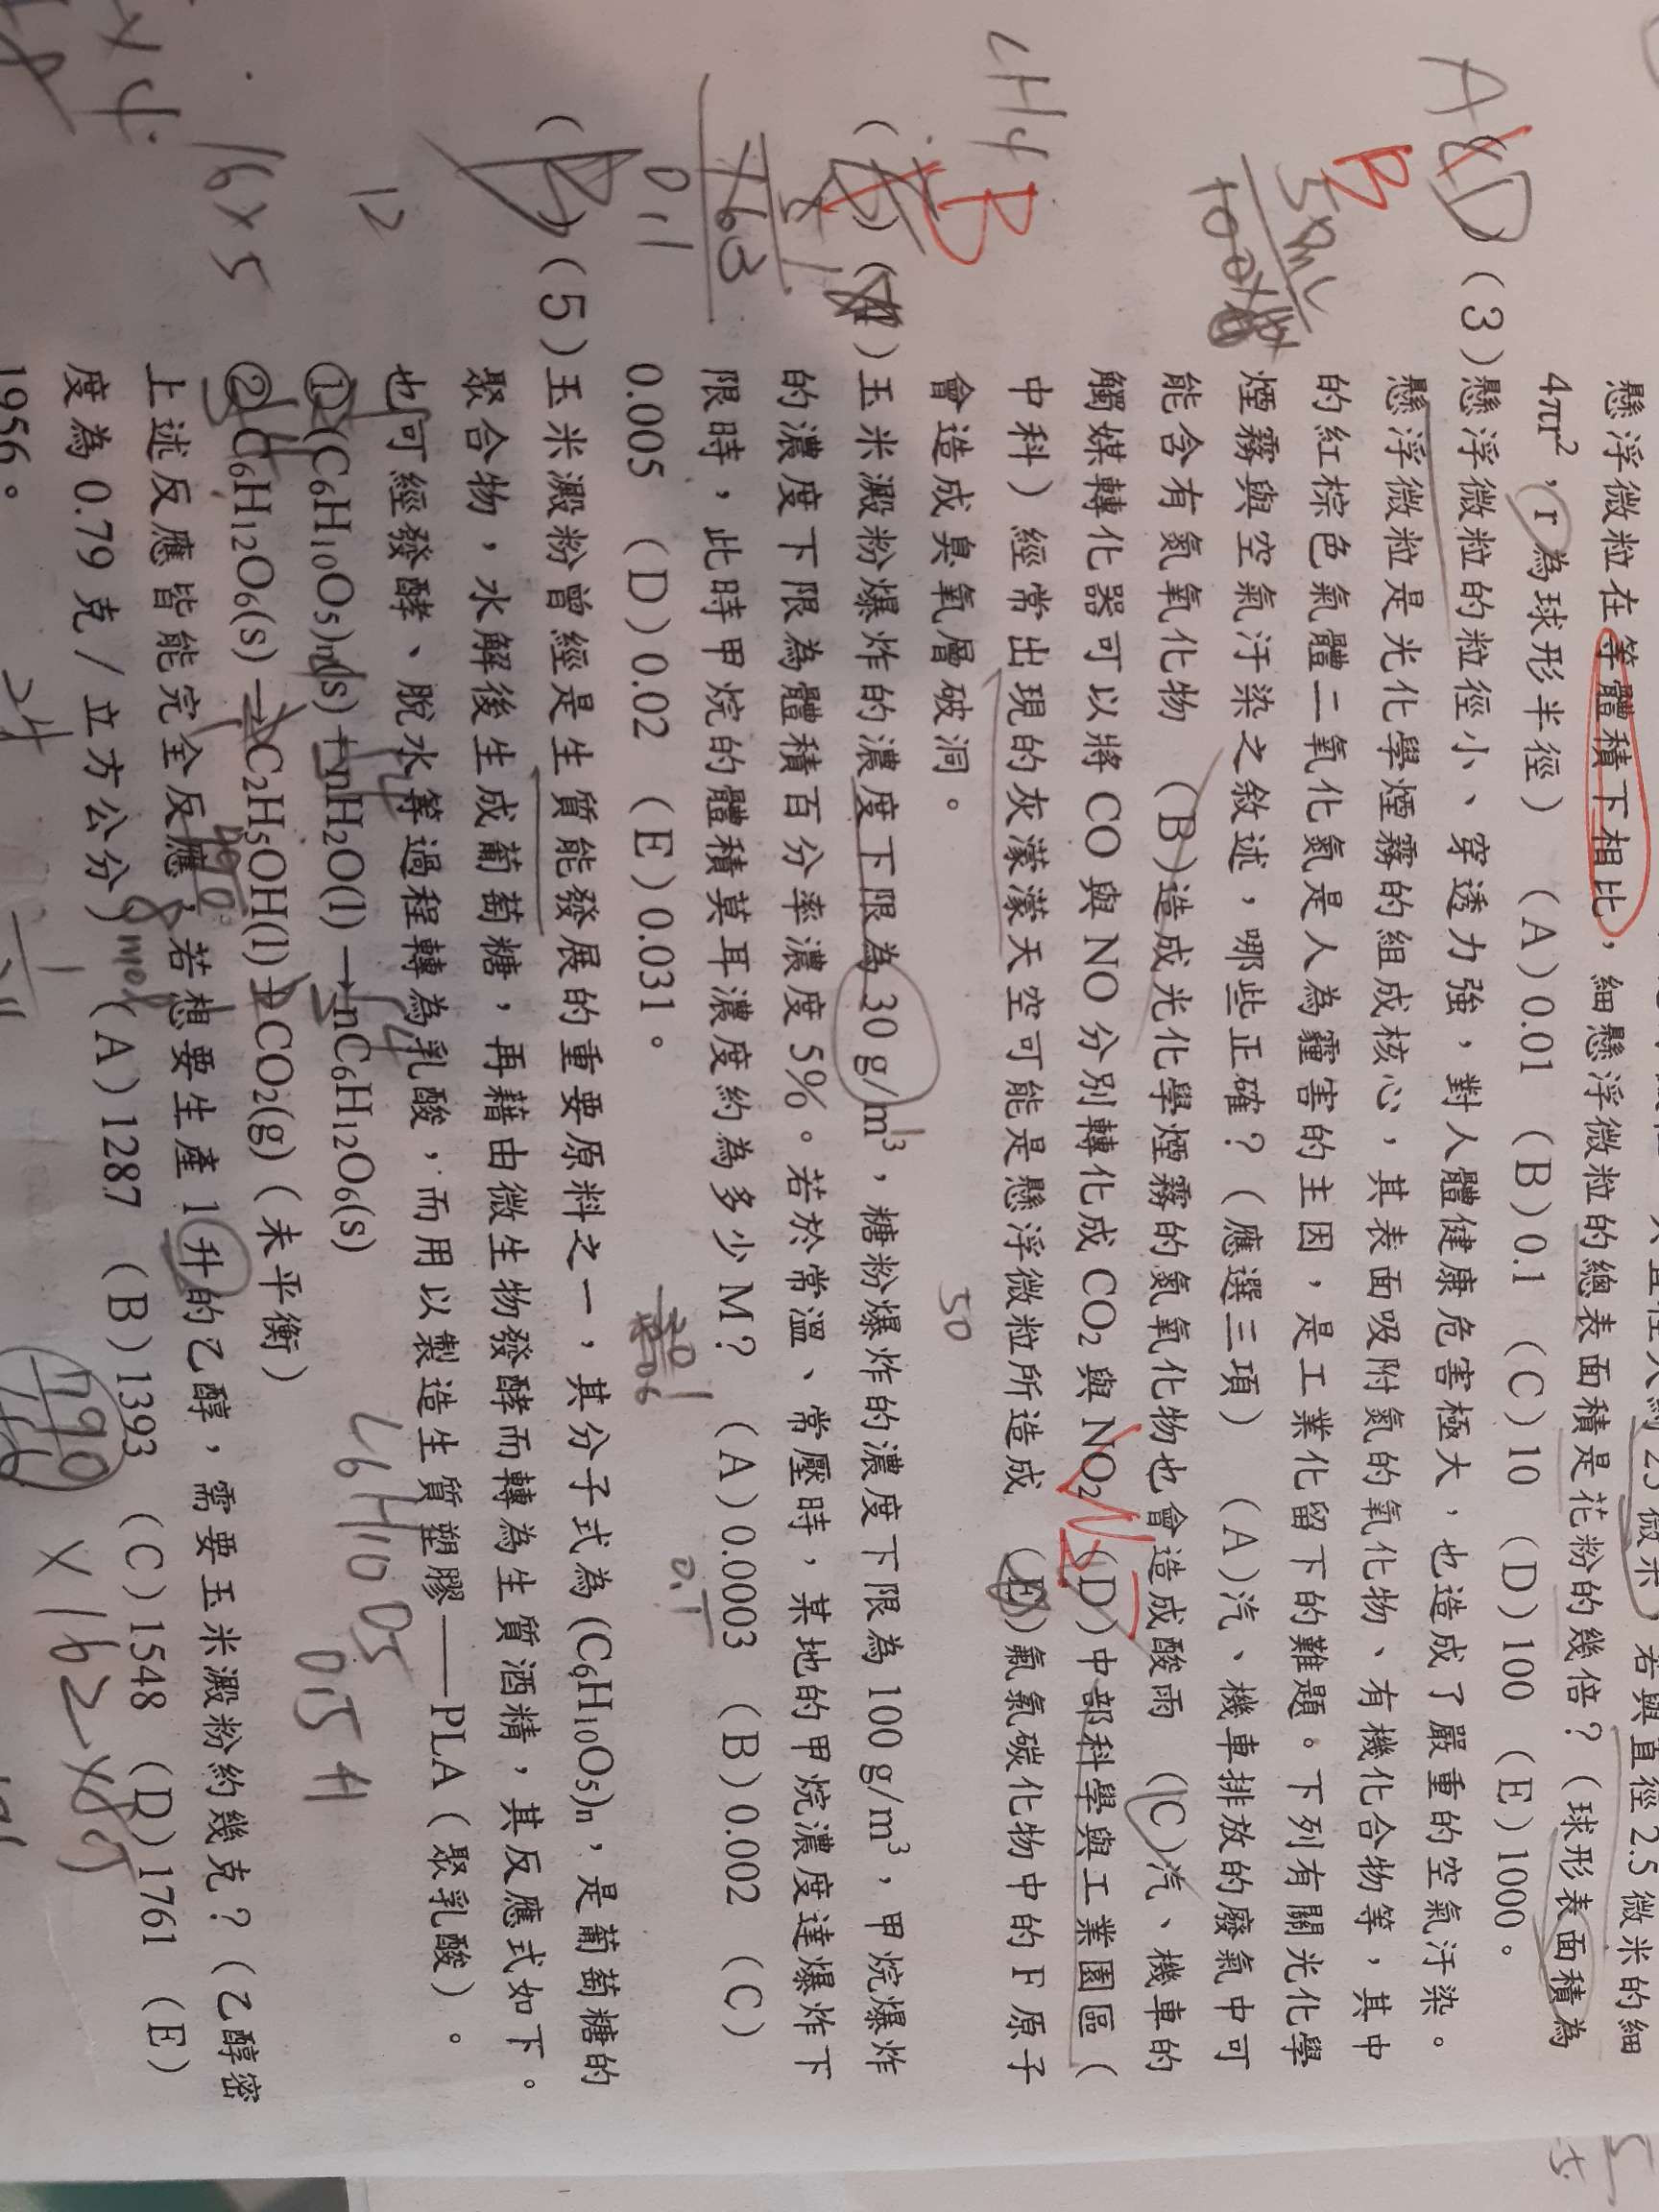 懸浮微粒在等體積下相比,細懸浮微粒的總表面積是花粉的幾倍?(球形表面積為
4πr²,r為球形半徑) (A)0.01 (B)0.1 (C)10 (D)100 (E)1000。
(3)懸浮微粒的粒徑小、穿透力強,對人體健康危害極大,也造成了嚴重的空氣汙染。
懸浮微粒是光化學煙霧的組成核心,其表面吸附氮的氧化物、有機化合物等,其中
的紅棕色氣體二氧化氮是人為霾害的主因,是工業化留下的難題。下列有關光化學
煙霧與空氣汙染之敘述,哪些正確?(應選三項) (A)汽、機車排放的廢氣中可
能含有氮氧化物 (B)造成光化學煙霧的氮氧化物也會造成酸雨 (C)汽、機車的
觸媒轉化器可以將CO與NO分別轉化成CO₂與NO₂ (D)中部科學與工業園區(
中科)經常出現的灰濛濛天空可能是懸浮微粒所造成 (E)氟氯碳化物中的F原子
會造成臭氧層破洞。
(4)玉米澱粉爆炸的濃度下限為30 g/m³,糖粉爆炸的濃度下限為100 g/m³,甲烷爆炸
的濃度下限為體積百分率濃度5%。若於常溫、常壓時,某地的甲烷濃度達爆炸下
限時,此時甲烷的體積莫耳濃度約為多少M? (A)0.0003 (B)0.002 (C)
0.005 (D)0.02 (E)0.031。
(5)玉米澱粉曾經是生質能發展的重要原料之一,其分子式為(C₆H₁₀O₅)n,是葡萄糖的
聚合物,水解後生成葡萄糖,再藉由微生物發酵而轉為生質酒精,其反應式如下。
也可經發酵、脫水等過程轉為乳酸,而用以製造生質塑膠——PLA(聚乳酸)。
①(C₆H₁₀O₅)n(s)+nH₂O(l)→nC₆H₁₂O₆(s)
②C₆H₁₂O₆(s)→C₂H₅OH(l)+CO₂(g)(未平衡)
上述反應皆能完全反應,若想要生產1升的乙醇,需要玉米澱粉約幾克?(乙醇密
度為0.79克/立方公分) (A)1287 (B)1393 (C)1548 (D)1761 (E)
1956。
CH4
B
B
50
12
16×5
C6H10O5
790
×162
0.1